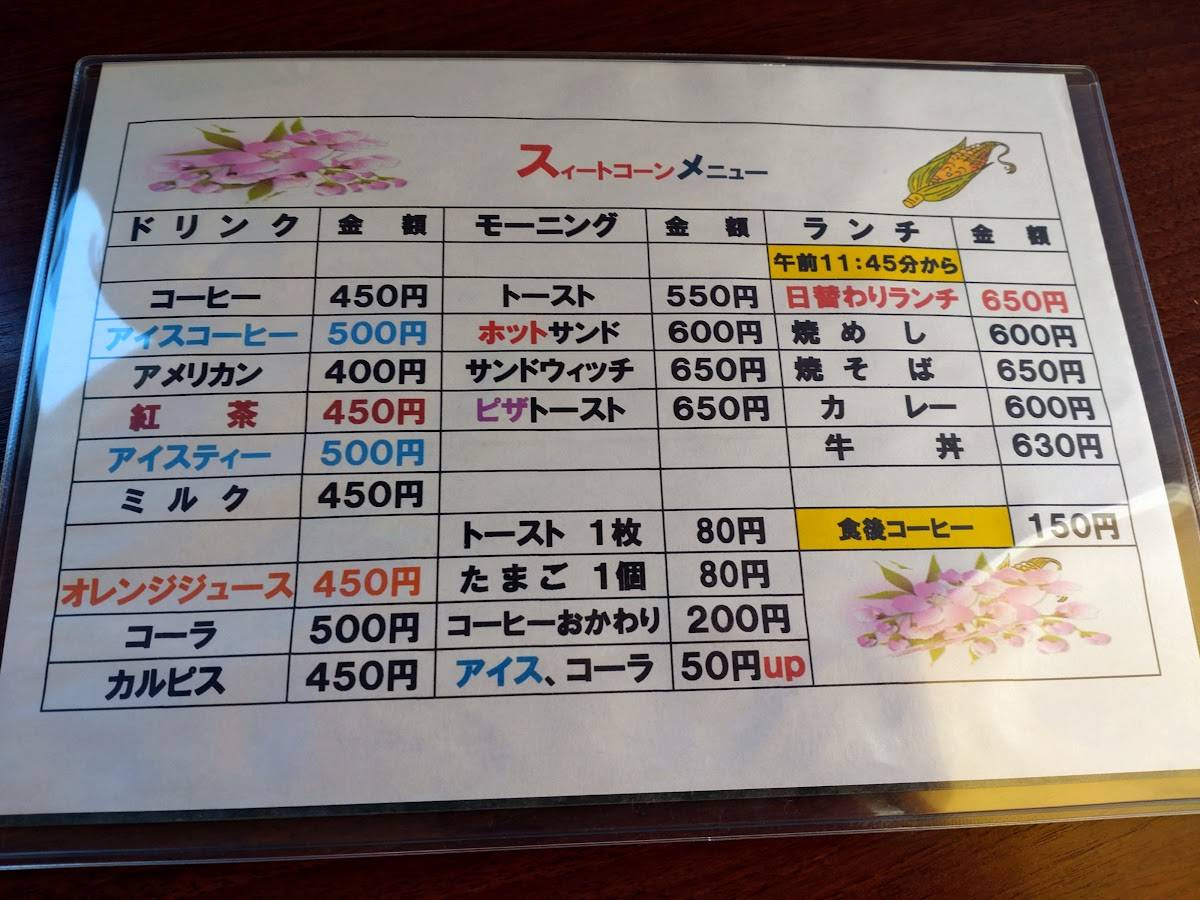 スィートコーンメニュー
ドリンク 金額 モーニング 金額 ランチ 金額
午前11:45分から
コーヒー 450円 トースト 550円 日替わりランチ 650円
アイスコーヒー 500円 ホットサンド 600円 焼めし 600円
アメリカン 400円 サンドウィッチ 650円 焼そば 650円
紅茶 450円 ピザトースト 650円 カレー 600円
アイスティー 500円 牛丼 630円
ミルク 450円
トースト 1枚 80円 食後コーヒー 150円
オレンジジュース 450円 たまご 1個 80円
コーラ 500円 コーヒーおかわり 200円
カルピス 450円 アイス、コーラ 50円up